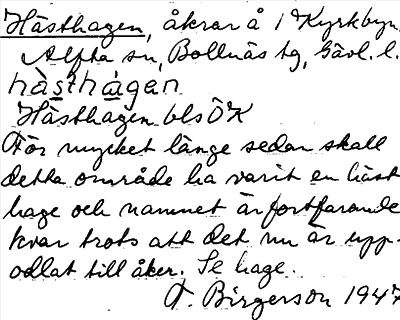 Hästhagen, åkrar å 1 Kyrkbyn,
Alfta sn, Bollnäs tg, Gävl. l.
hàsthágan
Hästhagen bls ÖK
För mycket länge sedan skall
detta område ha varit en häst
hage och namnet är fortfarande
kvar trots att det nu är upp-
odlat till åker. Se hage.
F. Birgerson 1947